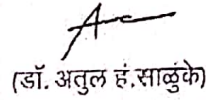 (डॉ. अतुल हं.साळुंके)